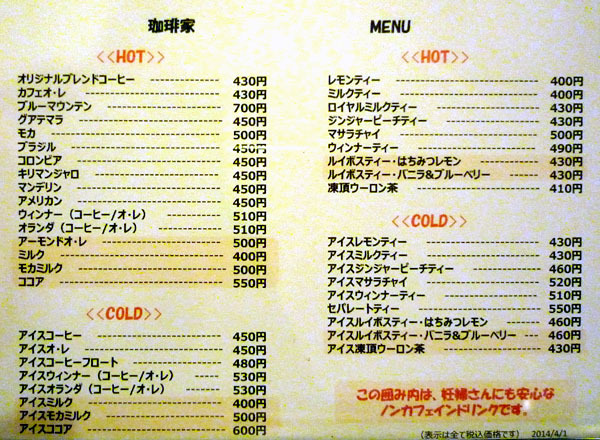 珈琲家
MENU
<<HOT>>
オリジナルブレンドコーヒー ---------------- 430円
カフェオ・レ ---------------- 430円
ブルーマウンテン ---------------- 700円
グアテマラ ---------------- 450円
モカ ---------------- 500円
ブラジル ---------------- 450円
コロンビア ---------------- 450円
キリマンジャロ ---------------- 450円
マンデリン ---------------- 450円
アメリカン ---------------- 450円
ウィンナー（コーヒー/オ・レ） -------- 510円
オランダ（コーヒー/オ・レ） -------- 510円
アーモンドオ・レ ---------------- 500円
ミルク ---------------- 400円
モカミルク ---------------- 500円
ココア ---------------- 550円
<<COLD>>
アイスコーヒー ---------------- 450円
アイスオ・レ ---------------- 450円
アイスコーヒーフロート ---------------- 480円
アイスウィンナー（コーヒー/オ・レ） ------ 530円
アイスオランダ（コーヒー/オ・レ） ------ 530円
アイスミルク ---------------- 400円
アイスモカミルク ---------------- 500円
アイスココア ---------------- 600円
<<HOT>>
レモンティー ---------------- 400円
ミルクティー ---------------- 400円
ロイヤルミルクティー ---------------- 430円
ジンジャーピーチティー ---------------- 430円
マサラチャイ ---------------- 500円
ウィンナーティー ---------------- 490円
ルイボスティー・はちみつレモン -------- 430円
ルイボスティー・バニラ&ブルーベリー ------ 430円
凍頂ウーロン茶 ---------------- 410円
<<COLD>>
アイスレモンティー ---------------- 430円
アイスミルクティー ---------------- 430円
アイスジンジャーピーチティー -------- 460円
アイスマサラチャイ ---------------- 520円
アイスウィンナーティー ---------------- 510円
セパレートティー ---------------- 550円
アイスルイボスティー・はちみつレモン ------ 460円
アイスルイボスティー・バニラ&ブルーベリー --- 460円
アイス凍頂ウーロン茶 ---------------- 430円
この囲み内は、妊婦さんにも安心な
ノンカフェインドリンクです。
（表示は全て税込価格です） 2014/4/1